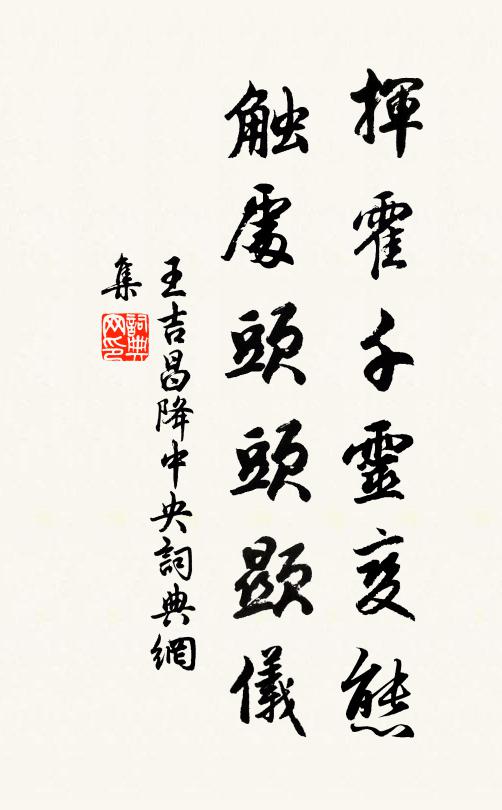 揮霍千靈变態
触處頭頭顯儀
王吉昌降中央詞典網
集
詞典
网印